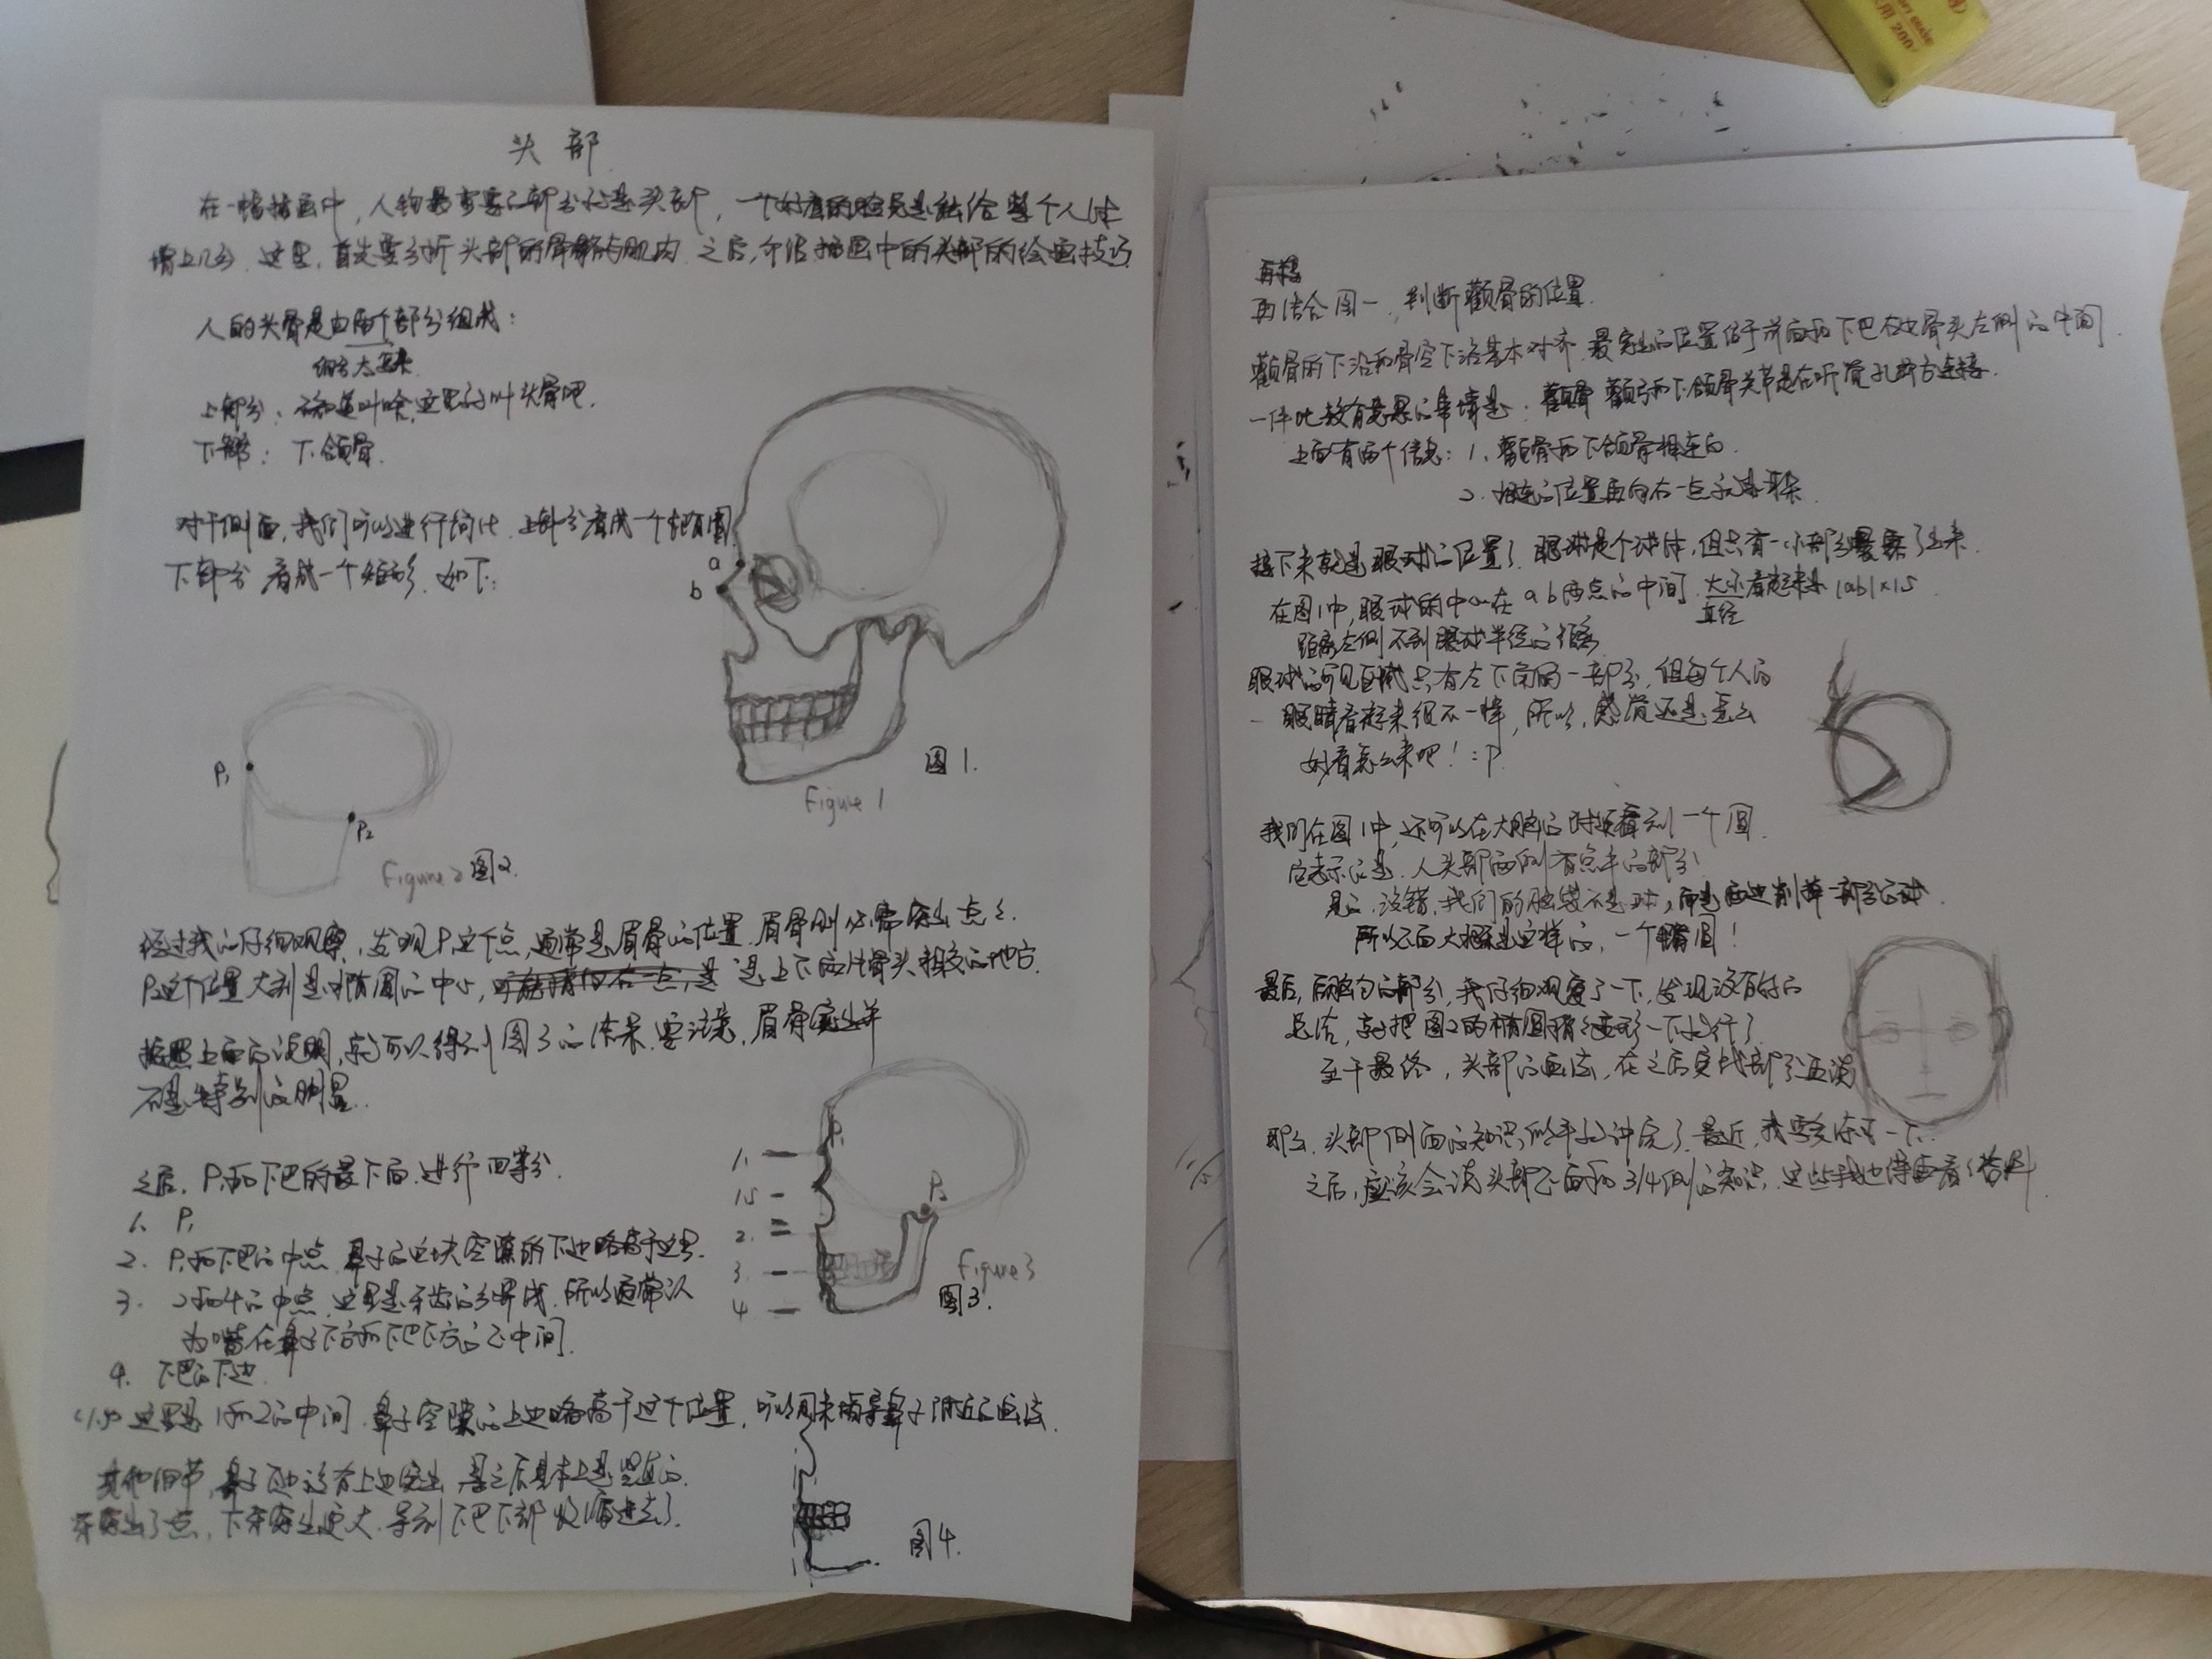 头部
在一幅插画中，人物最重要的部分就是头部，一个好看的脸总是能给整个人体
增上几分。这里，首先要分析头部的骨骼与肌肉。之后，介绍插画中的头部的绘画技巧
人的头骨是由两个部分组成：
上部分：不知道叫啥，这里就叫头骨吧.
下部：下颌骨.
对于侧面，我们可以进行简化，上部分看成一个椭圆
下部分看成一个矩形，如下：
a
b
图1.
Figure 1
P₁
P₂
Figure 2 图2.
经过我的仔细观察，发现P₁这个点，通常是眉骨的位置，眉骨则必需突出一点点.
P₂这个位置大到是椭圆的中心，是上下两片骨头相交的地方.
按照上面的说明，就可以得到图3的结果，要注意，眉骨突出并
不是特别的明显.
之后，P₁和下巴的最下面，进行四等分.
1. P₁
2. P₁和下巴的中点，鼻子的这块空隙的下边略高于这里.
3. 2和4的中点，这里是牙齿的分界线，所以通常认
为嘴在鼻子下方和下巴下方的正中间.
4. 下巴的下边
<1.5> 这里是1和2的中间，鼻子空隙的上边略高于这个位置，可以用来指导鼻子附近的画法.
其他细节，鼻子下边没有上边突出，鼻之后基本上是竖直的.
牙突出了点，下牙突出更大，导致下巴下部收缩进去了.
1.
1.5
2.
3.
4
P₁
P₂
Figure 3
图3.
图4.
再结合图一，判断颧骨的位置.
颧骨的下沿和骨空下沿基本对齐，最突出的位置位于前面和下巴右边骨头左侧的中间.
一件比较有意思的事情是：颧弓和下颌骨关节是在听觉孔前方连接.
上面有两个信息：1、颧骨和下颌骨相连的.
2、相连的位置再向右一点就是耳朵.
接下来就是眼球的位置了，眼球是个球体，但只有一小部分暴露了出来.
在图1中，眼球的中心在ab两点的中间，看起来是|ab|×1.5
直径
距离左侧不到眼球半径的距离
眼球的可见区域只有左下角的一部分，但每个人的
眼睛看起来很不一样，所以，感觉还是怎么
好看怎么来吧！:P
我们在图1中，还可以在大脑的球类看到一个圆.
它表示的是，人头部两侧有点平的部分
是的，没错，我们的脑袋不是球，而是两边削掉一部分的球.
所以正面大概是这样的，一个椭圆！
最后，后脑勺的部分，我仔细观察了一下，发现没有好的
总结，就把图2的椭圆稍稍变形一下就行了
至于最终，头部的画法，在之后实战部分再谈
那么，头部侧面的知识似乎就讲完了，最近，我要休息一下.
之后，应该会谈头部正面和3/4侧的知识，这些我也得再看看资料.